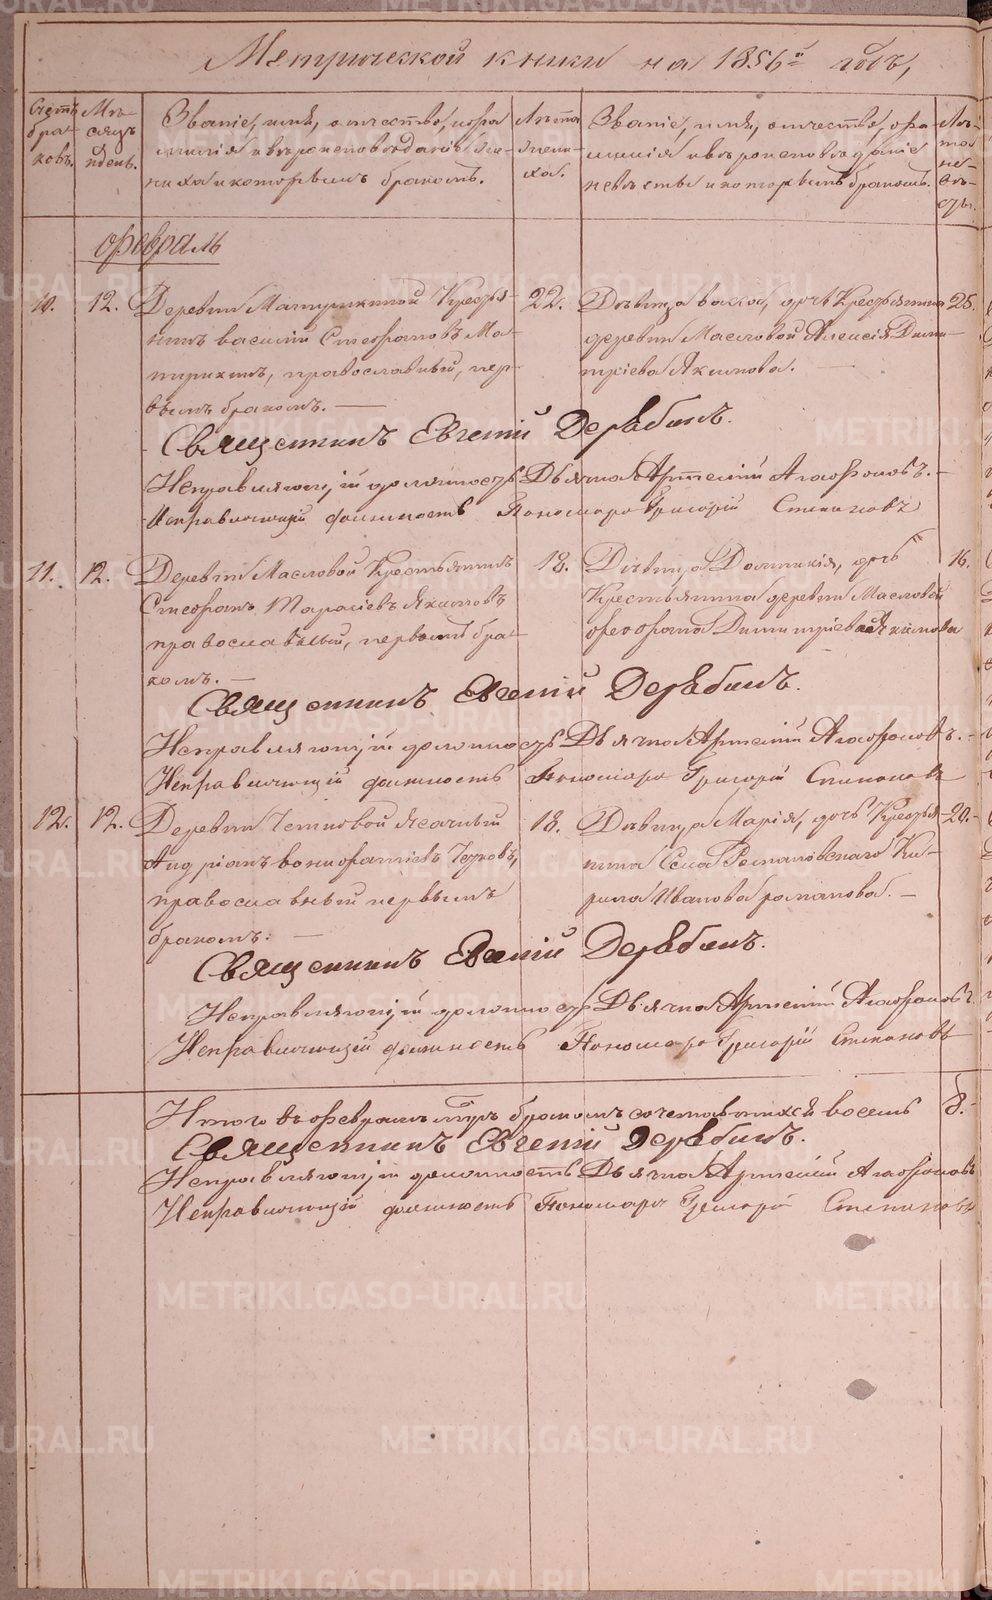 Метрической книги на 1856й годъ,
Счетъ браковъ.
Мѣсяцъ и день.
Званіе, имя, отчество, фамилія и вѣроисповѣданіе жениха и которымъ бракомъ.
Лѣта жениха.
Званіе, имя, отчество, фамилія и вѣроисповѣданіе невѣсты и которымъ бракомъ.
Лѣта невѣсты.
Февраль
10. 12. Деревни Матушкиной Крестья-
нинъ Василий Стефановъ Ма-
православный, пер-
вымъ бракомъ.
22.
Дѣвица дочь Крестьянина
деревни Масловой Алексія Дими-
тріева Якимова.
25.
Священникъ Евгеній Дерябинъ.
Исправляющій должность Дьячка Артемій Агафоновъ.
Исправляющій должность Пономаря Григорій Степановъ
11. 12. Деревни Масловой Крестьянинъ
Стефанъ Тарасіевъ Якимовъ
православный, первымъ бра-
комъ.
18.
Дѣвица Домникія, дочь
Крестьянина деревни Масловой
Димитріева Якимова
16.
Священникъ Евгеній Дерябинъ.
Исправляющій должность Дьячка Артемій Агафоновъ.
Исправляющій должность Пономаря Григорій Степановъ
12. 12. Деревни Ясачный
православный первымъ
бракомъ.
18.
Дѣвица Марія, дочь Крестья-
нина Села Романовскаго Ки-
рила Иванова Романова.
20.
Священникъ Евгеній Дерябинъ.
Исправляющій должность Дьячка Артемій Агафоновъ
Исправляющій должность Пономаря Григорій Степановъ
Итого въ февралѣ мцѣ бракомъ сочетавшихся восемь 8.
Священникъ Евгеній Дерябинъ.
Исправляющій должность Дьячка Артемій Агафоновъ
Исправляющій должность Пономаря Григорій Степановъ
METRIKI.GASO-URAL.RU